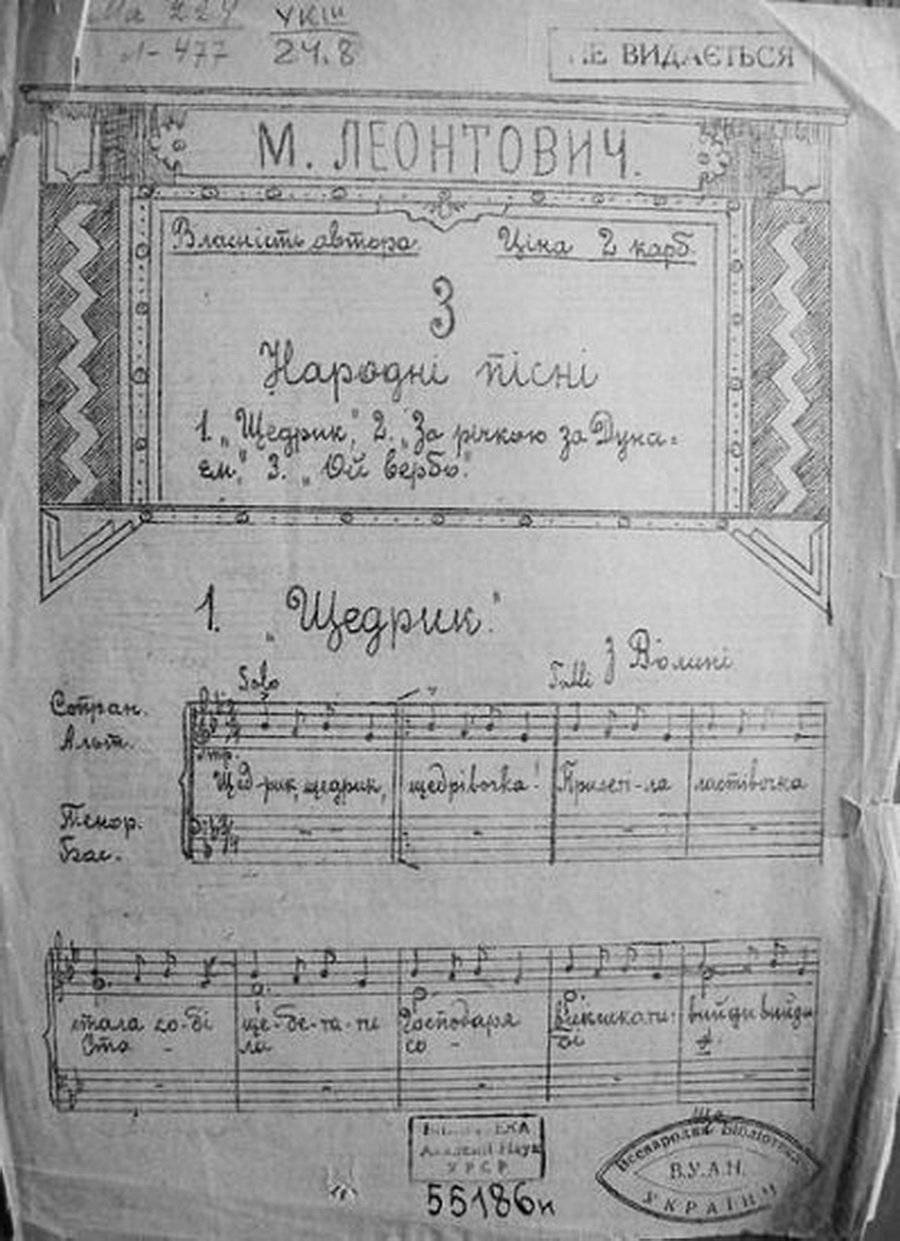 Ма 224 УКІІІ
л-477 24.8
НЕ ВИДАЄТЬСЯ
М. ЛЕОНТОВИЧ.
Власність автора. Ціна 2 карб.
3
Народні пісні
1. „Щедрик", 2. „За річкою за Дуна=
єм". 3. „Ой вербо".
1. „Щедрик".
З Волині
Solo Tutti
Сопран.
Альт.
Щед-рик, щедрик, щедрівочка! Прилеті-ла ластівочка
Тенор.
Бас.
стала со-бі ще-бе-та-ти Господаря викликати: вийди вийди
Ста - ла со - бі
Ще
БІБЛІОТЕКА
Академії Наук
УРСР
55186н
Всенародня Бібліотека
В.У.А.Н.
УКРАЇНИ